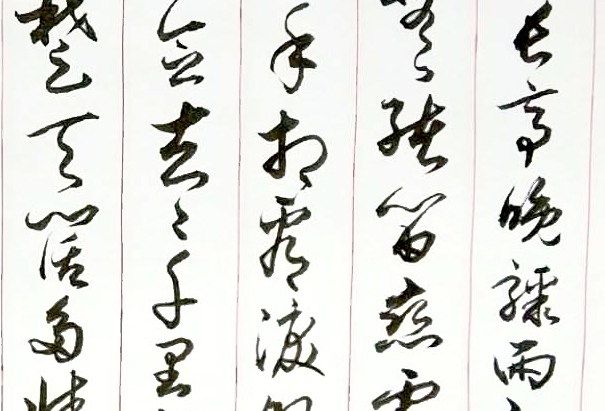 長亭晚驟雨
緒留恋處
手相看淚
念去々千里
楚天闊多情